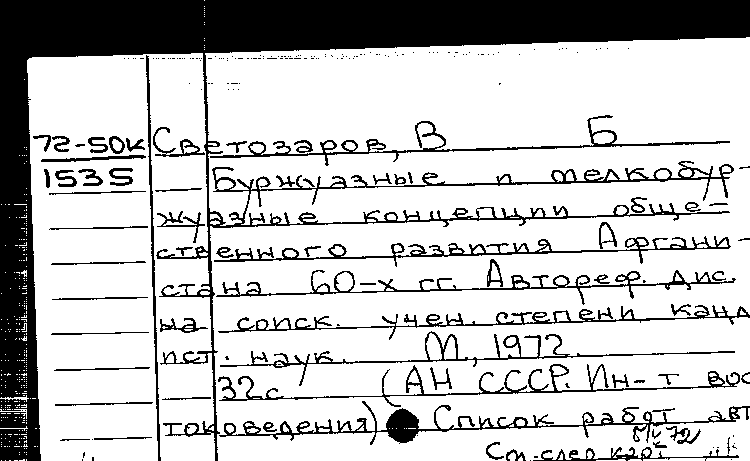 72-50К Светозаров, В Б
1535 Буржуазные и мелкобур-
жуазные концепции обще-
ственного развития Афгани-
стана 60-х гг. Автореф. дис.
на соиск. учен. степени канд
ист. наук. М., 1972.
32с (АН СССР. Ин-т вос
токоведения) Список работ авт
См. след карт